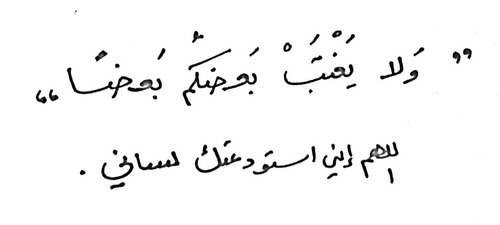 " وَلا يَغْتَبْ بَعضُكُم بَعضًا "
اللهم إني استودعتك لساني .